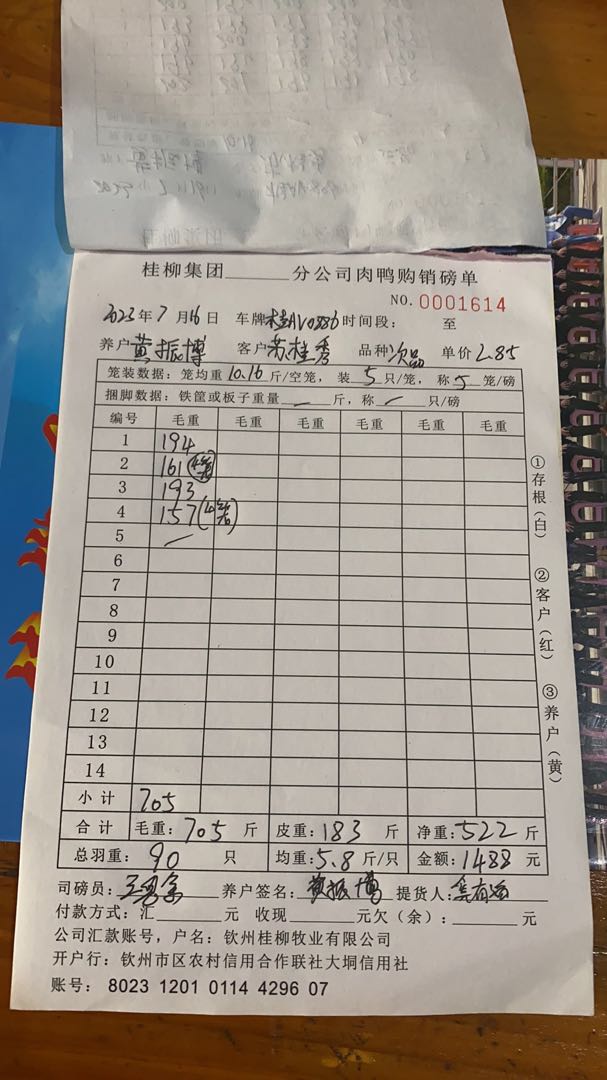 桂柳集团______分公司肉鸭购销磅单
NO.0001614
2023年7月16日 车牌桂AV0386时间段: 至
养户黄振博 客户苏桂秀 品种次品 单价2.85
笼装数据:笼均重10.16斤/空笼,装5只/笼,称5笼/磅
捆脚数据:铁筐或板子重量—斤,称—只/磅
编号 毛重 毛重 毛重 毛重 毛重 毛重
1 194
2 161(4笼)
3 193
4 157(4笼)
5 —
6
7
8
9
10
11
12
13
14
小计 705
合计 毛重:705斤 皮重:183斤 净重:522斤
总羽重:90只 均重:5.8斤/只 金额:1488元
司磅员: 养户签名:黄振博 提货人:
付款方式:汇______元 收现______元欠(余):______元
公司汇款账号,户名:钦州桂柳牧业有限公司
开户行:钦州市区农村信用合作联社大垌信用社
账号:8023 1201 0114 4296 07
①存根(白)
②客户(红)
③养户(黄)